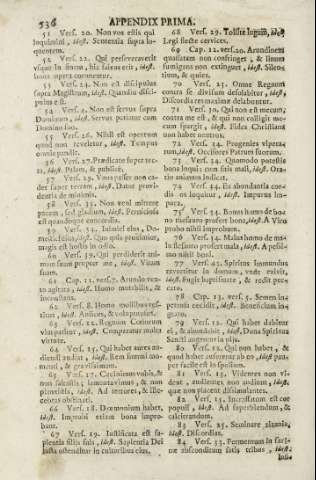 536 APPENDIX PRIMA.
51 Vers. 20. Non vos estis qui
loquimini, idest. Sententia supra lo-
quentem.
52 Vers. 22. Qui perseveraverit
usque in finem, hic salvus erit, idest.
bona opera commenter.
53 Vers. 24. Non est discipulus
supra Magistrum, idest. Quandiu disci-
pulus est.
54 Vers. 2. Non est servus supra
Dominum, idest. Servus petitur cum
Domino suo.
55 Vers. 26. Nihil est opertum
quod non reveletur, idest. Tempus
omnia pandit.
56 Vers. 27. Prædicate super tec-
ta, idest. Palam, & publicè.
57 Vers. 29. Unus passer non ca-
det super terram, idest. Datur provi-
dentia de minimis.
58 Vers. 35. Non veni mittere
pacem, sed gladium, idest. Perniciosa
est quandoque concordia.
59 Vers. 34. Inimici ejus, Do-
mestici ejus, idest. Quo quis proximior,
magis est hostis in cæso.
60 Vers. 39. Qui perdiderit ani-
mam suam propter me, idest. Vitam
suam.
61 Cap. 11. vers. 7. Arundo ven-
to agitata, idest. Homo mutabilis, &
inconstans.
62 Vers. 8. Homo mollibus ves-
titus, idest. Aulices, & voluptuosus.
63 Vers. 12. Regnum Cœlorum
vim patitur, idest. Comparatur multa
virtute.
64 Vers. 15. Qui habet aures au-
diendi audiat, idest. Rem summi mo-
menti, & gravissimam.
65 Vers. 17. Cecinimus vobis, &
non saltastis; lamentavimus, & non
planxistis, idest. Ad terrores, & ille-
cebras obstinati.
66 Vers. 18. Dæmonium habet,
idest. Improbi etiam bona impro-
bant.
67 Vers. 19. Justificata est sa-
pientia filiis suis, idest. Sapientia Dei
justa ostenditur in cultoribus ejus.
68 Vers. 29. Tollite jugum, idest
Legi flecte cervices.
69 Cap. 12. vers. 20. Arundinem
quassatam non confringet, & linum
fumigans non extinguet, idest. Silens
tium, & quies.
70 Vers. 25. Omne Regnum
contra se divisum desolabitur, idest,
Discordia res maximæ delabentur.
71 Vers. 30. Qui non est mecum,
contra me est, & qui non colligit me-
cum spargit, idest. Fides Christiana
non habet neutros.
72 Vers. 34. Progenies vipera-
rum, idest. Occisores Patrum suorum.
73 Vers. 34. Quomodo potestis
bona loqui cum sitis mali, idest. Ora-
tio animum indicat.
74 Vers. 34. Ex abundantia cor-
dis os loquitur, idest. Impurus im-
pura.
75 Vers. 34. Bonus homo de bo-
no thesauro profert bona, idest. A Viro
probo nihil improbum.
76 Vers. 34. Malus homo de ma-
lo thesauro profert mala, idest. A pessi-
mo nihil boni.
77 Vers. 43. Spiritus immundus
revertitur in domum, unde exivit,
idest. Fugit superstitute, & redit præ-
citate.
78 Cap. 13. vers. 5. Semen in
petrosis cecidit, idest. Beneficium in
grato.
79 Vers. 12. Qui habet dabitur
ei, & abundabit, idest, Dona Spiritus
Sancti augentur in pijs.
80 Vers. 12. Qui non habet, &
quod habet auferetur ab eo, idest pau-
per facilè fit spolium.
81 Vers. 13. Videntes non vi-
dent, audientes non audiunt, idest.
quæ non placent dissimulantes.
82 Vers. 15. Incrassatum est cor
populi, idest. Ad superbiendum, &
calcitrandum.
83 Vers. 25. Seminare zizania,
idest. Discordias.
84 Vers. 33. Fermentum in fari-
næ absconditum satis tribus, idest.